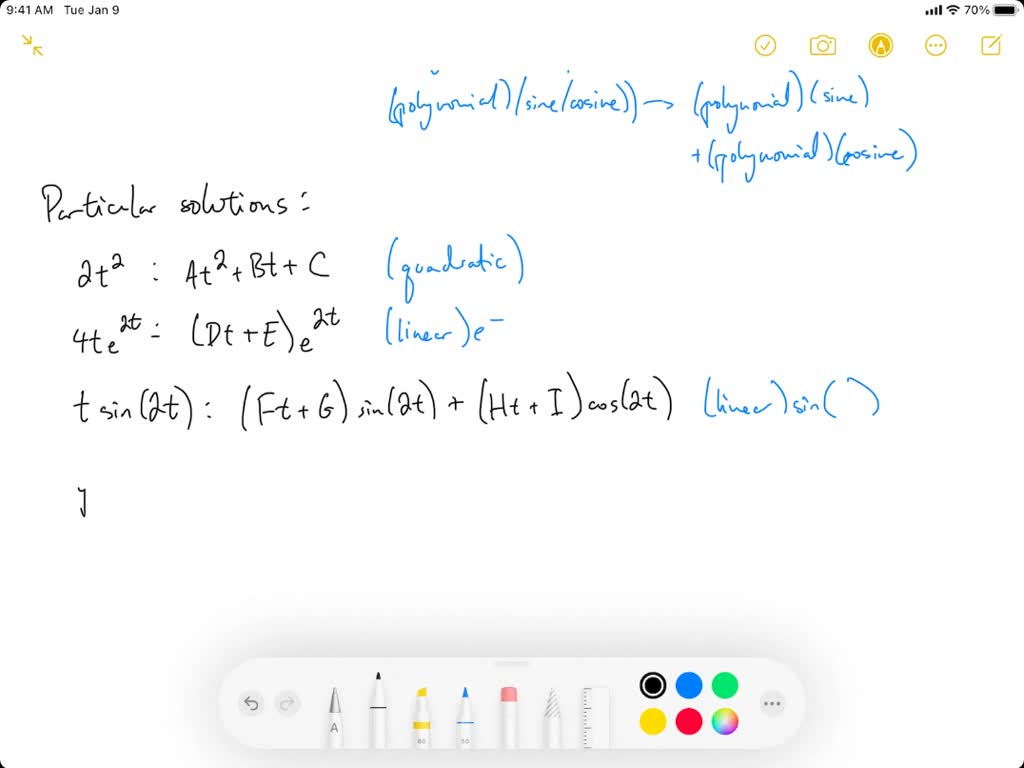 9:41 AM Tue Jan 9
70%
(polynomial)(sine/cosine)) → (polynomial)(sine)
+(polynomial)(cosine)
Particular solutions:
2t² : At²+Bt+C (quadratic)
4te^2t : (Dt+E)e^2t (linear)e^-
t sin(2t) : (Ft+G) sin(2t) + (Ht+I) cos(2t) (linear) sin( )
A
80
50